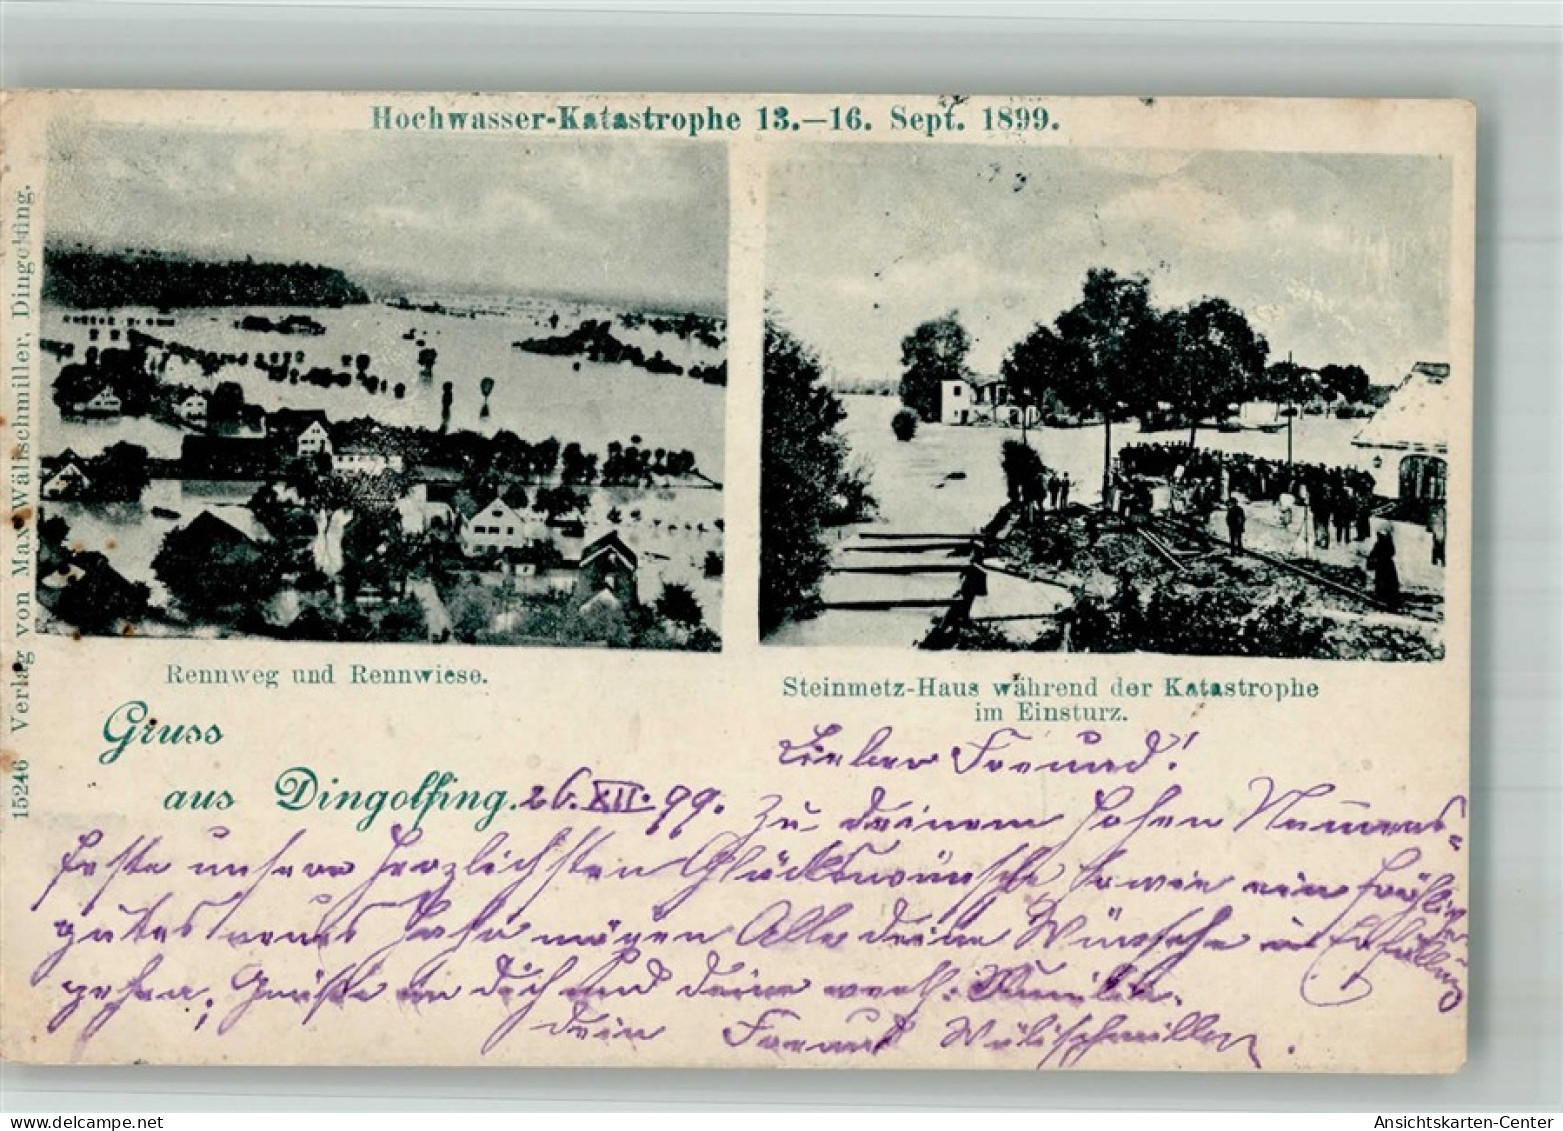 Hochwasser-Katastrophe 13.—16. Sept. 1899.
15246 Verlag von Max Wällischmiller, Dingolfing.
Rennweg und Rennwiese.
Steinmetz-Haus während der Katastrophe
im Einsturz.
Gruss
aus Dingolfing.
26. XII. 99.
Lieber Freund!
Zu deinem hohen Namens=
feste unsere herzlichsten Glückswünsche sowie ein fröhliches
gutes neues Jahr mögen Alle deine Wünsche in Erfüllung
gehen. Grüße an Dich und deine werth. Familie.
dein Freund Wälischmiller.
delcampe.net
Ansichtskarten-Center